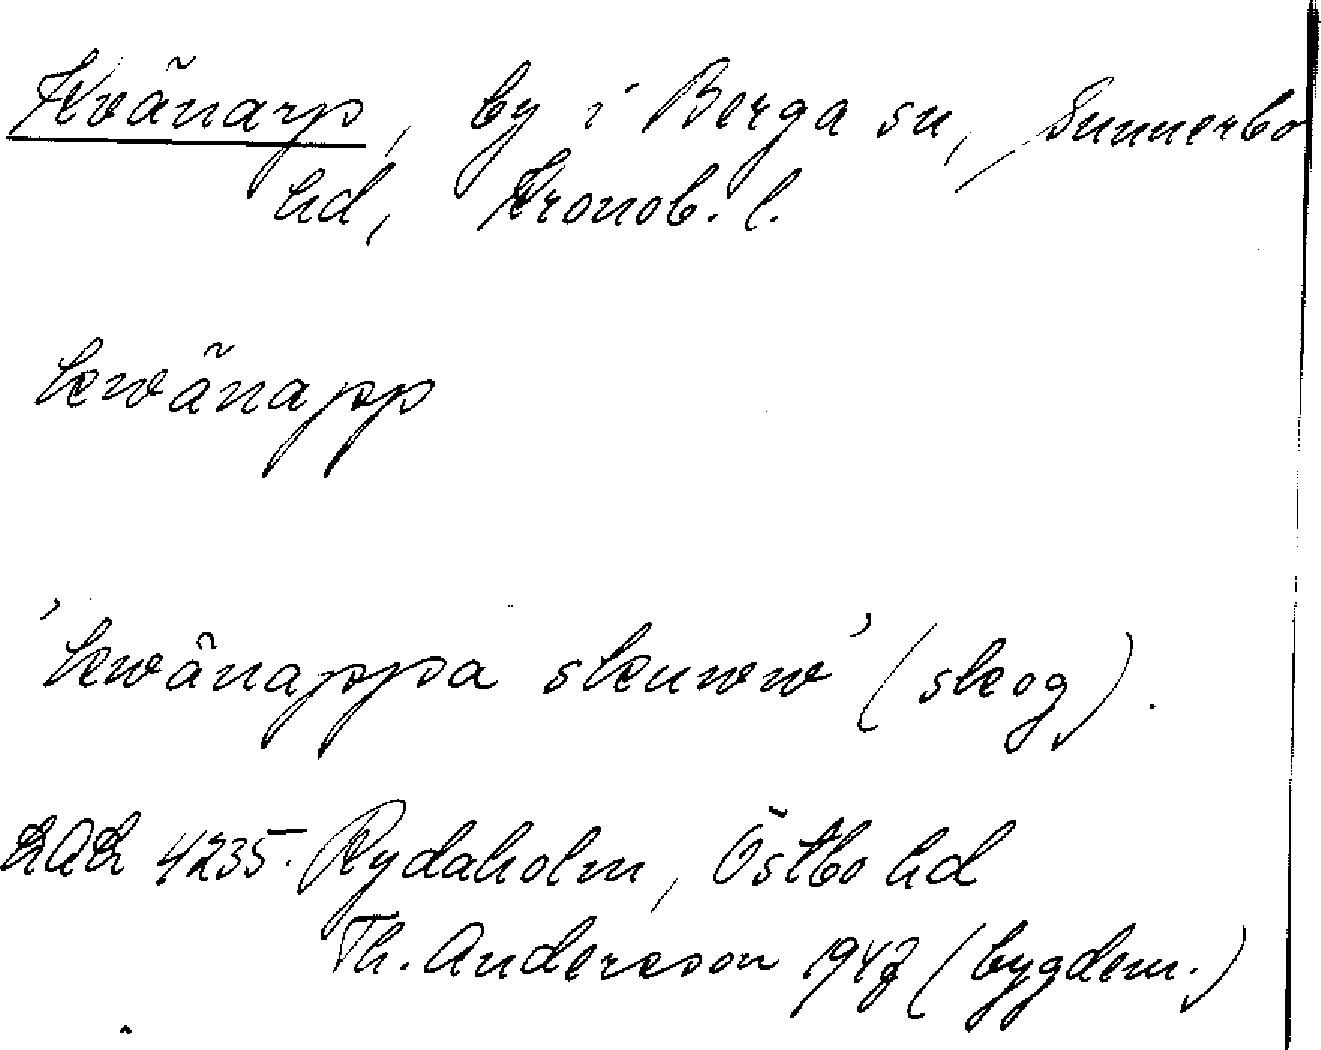 Kvänarp, by i Berga sn, Sunnerbo
hd, Kronob. l.
kwänapp
'kwänappsa skuww' (skog).
4235. Rydaholm, Östbo hd
Th. Andersson 1947 (bygdem.)